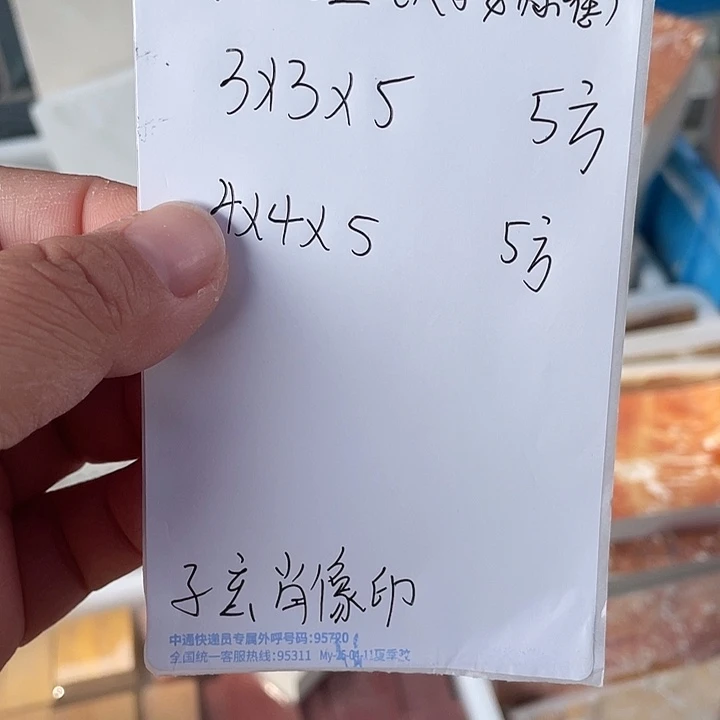 3x3x5 5方
4x4x5 5方
子玄肖像印
中通快递员专属外呼号码:95720
全国统一客服热线:95311